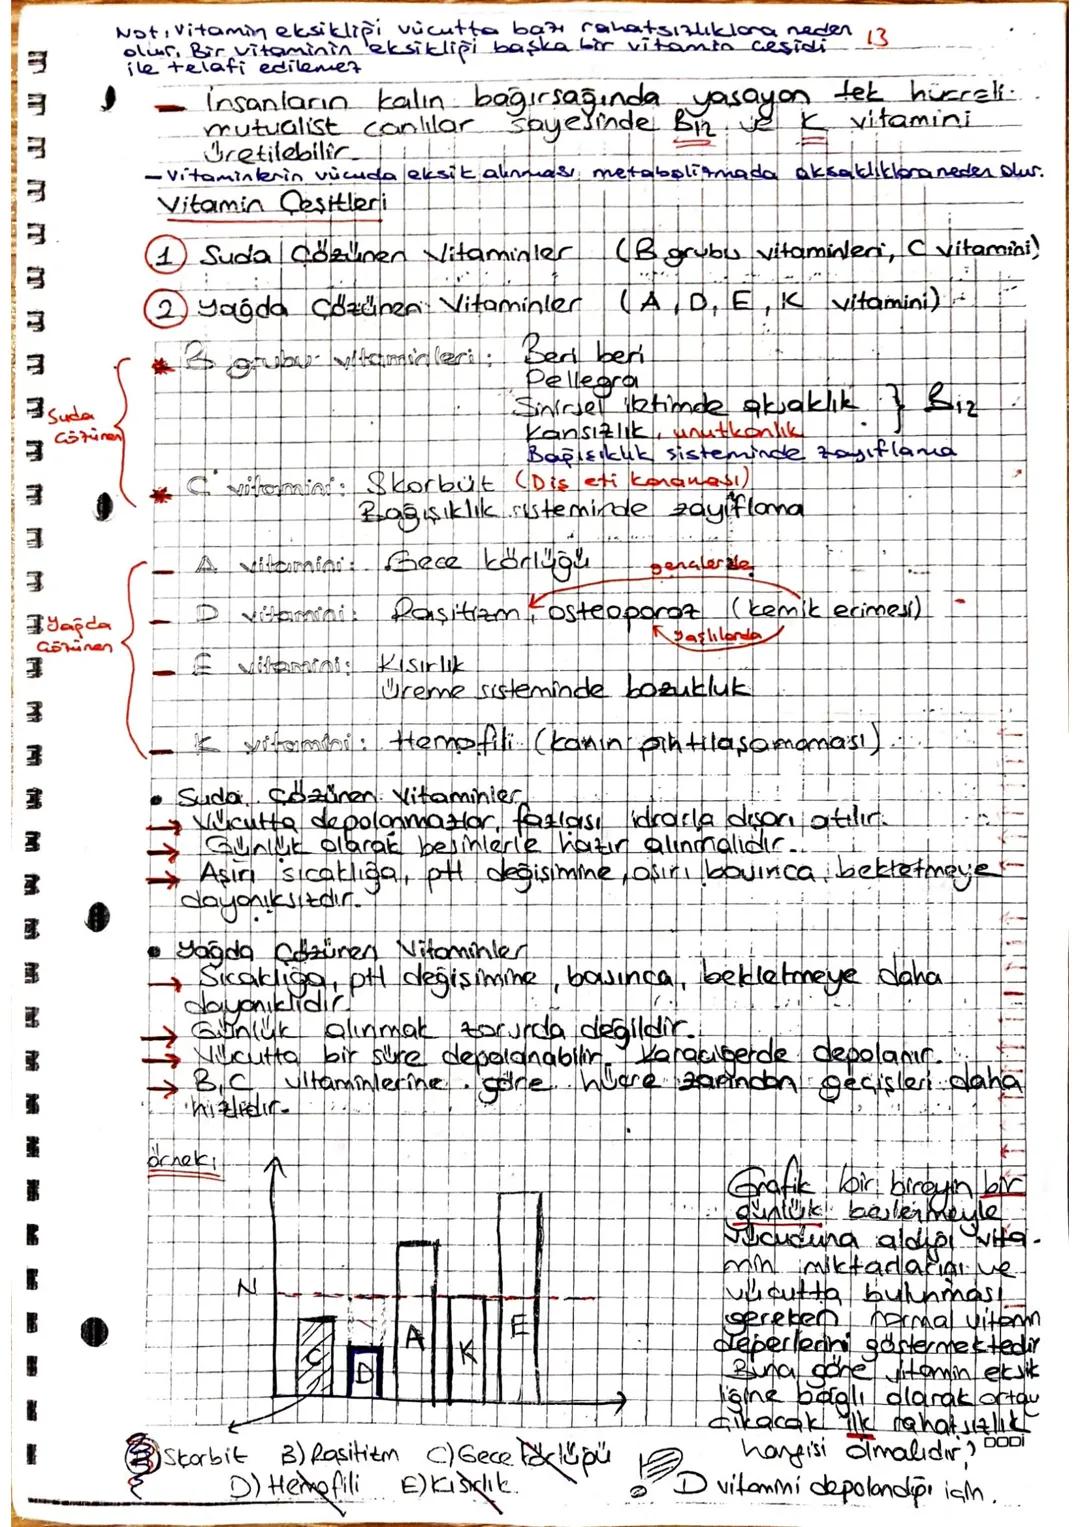 Not: Vitamin eksikliği vücutta bazı rahatsızlıklara neden
olur. Bir vitaminin eksikliği başka bir vitamin çeşidi
ile telafi edilemez
13
- İnsanların kalın bağırsağında yaşayan tek hücreli
mutualist canlılar sayesinde B12 ve K vitamini
üretilebilir.
- Vitaminlerin vücuda eksik alınması metabolizmada aksaklıklara neden olur.
Vitamin Çeşitleri
1 Suda Çözünen Vitaminler (B grubu vitaminleri, C vitamini)
2 Yağda Çözünen Vitaminler (A, D, E, K vitamini)
Suda Çözünen
* B grubu vitaminleri: Beri beri
Pellegra
Sinirsel iletimde aksaklık } B12
Kansızlık, unutkanlık
Bağışıklık sisteminde zayıflama
* C vitamini: Skorbüt (Diş eti kanaması)
Bağışıklık sisteminde zayıflama
Yağda Çözünen
- A vitamini: Gece körlüğü
gençlerde
- D vitamini: Raşitizm, osteoporoz (kemik erimesi)
yaşlılarda
- E vitamini: Kısırlık
Üreme sisteminde bozukluk
- K vitamini: Hemofili (kanın pıhtılaşamaması)
• Suda Çözünen Vitaminler
→ Vücutta depolanmazlar, fazlası idrarla dışarı atılır.
→ Günlük olarak besinlerle hazır alınmalıdır.
→ Aşırı sıcaklığa, pH değişimine, aşırı basınca, bekletmeye
dayanıksızdır.
• Yağda Çözünen Vitaminler
→ Sıcaklığa, pH değişimine, basınca, bekletmeye daha
dayanıklıdır.
→ Günlük alınmak zorunda değildir.
→ Vücutta bir süre depolanabilir. Karaciğerde depolanır.
→ B,C vitaminlerine göre hücre zarından geçişleri daha
hızlıdır.
örnek:
N
C
D
A
K
E
Grafik bir bireyin bir
günlük beslenmeyle
vücuduna aldığı vita-
min miktarlarını ve
vücutta bulunması
gereken normal vitamin
değerlerini göstermektedir
Buna göre vitamin eksik
liğine bağlı olarak ortaya
çıkacak ilk rahatsızlık
hangisi olmalıdır?
A) Skorbit B) Raşitizm C) Gece körlüğü
D) Hemofili E) Kısırlık
! D vitamini depolandığı için.